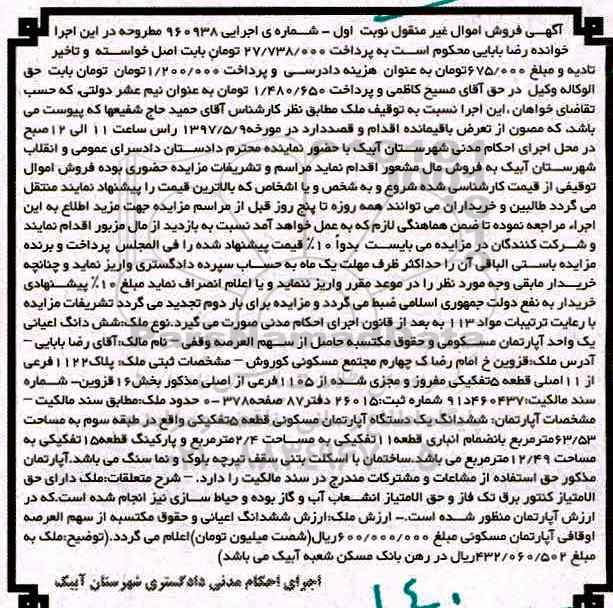 آگهی فروش اموال غیر منقول نوبت اول - شماره ی اجرایی ۹۶۰۹۳۸ مطروحه در این اجرا
خوانده رضا بابایی محکوم است به پرداخت ۲۷/۷۳۸/۰۰۰ تومان بابت اصل خواسته و تاخیر
تادیه و مبلغ ۶۷۵/۰۰۰تومان به عنوان هزینه دادرسی و پرداخت ۱/۲۰۰/۰۰۰تومان تومان بابت حق
الوکاله وکیل در حق آقای مسیح کاظمی و پرداخت ۱/۴۸۰/۶۵۰ تومان به عنوان نیم عشر دولتی، که حسب
تقاضای خواهان ،این اجرا نسبت به توقیف ملک مطابق نظر کارشناس آقای حمید حاج شفیعها که پیوست می
باشد، که مصون از تعرض باقیمانده اقدام و قصددارد در مورخه۱۳۹۷/۵/۹ راس ساعت ۱۱ الی ۱۲صبح
در محل اجرای احکام مدنی شهرستان آبیک با حضور نماینده محترم دادستان دادسرای عمومی و انقلاب
شهرستان آبیک به فروش مال مشعور اقدام نماید مراسم و تشریفات مزایده حضوری بوده فروش اموال
توقیفی از قیمت کارشناسی شده شروع و به شخص و یا اشخاص که بالاترین قیمت را پیشنهاد نمایند منتقل
می گردد طالبین و خریداران می توانند همه روزه تا پنج روز قبل از مراسم مزایده جهت مزید اطلاع به این
اجراء مراجعه نموده تا ضمن هماهنگی لازم که به عمل خواهد آمد نسبت به بازدید از مال مزبور اقدام نمایند
و شرکت کنندگان در مزایده می بایست بدوا ۱۰٪ قیمت پیشنهاد شده را فی المجلس پرداخت و برنده
مزایده باستی الباقی آن را حداکثر ظرف مهلت یک ماه به حساب سپرده دادگستری واریز نماید و چنانچه
خریدار مابقی وجه مورد نظر را در موعد مقرر واریز ننماید و یا اعلام انصراف نماید مبلغ ۱۰٪ پیشنهادی
خریدار به نفع دولت جمهوری اسلامی ضبط می گردد و مزایده برای بار دوم تجدید می گردد تشریفات مزایده
با رعایت ترتیبات مواد ۱۱۳ به بعد از قانون اجرای احکام مدنی صورت می گیرد.نوع ملک:شش دانگ اعیانی
یک واحد آپارتمان مسکومی و حقوق مکتسبه حاصل از سهم العرصه وقفی - نام مالک:آقای رضا بابایی –
آدرس ملک:قزوین خ امام رضا ک چهارم مجتمع مسکونی کوروش – مشخصات ثبتی ملک: پلاک۱۱۲۲فرعی
از ۱۱اصلی قطعه ۵تفکیکی مفروز و مجزی شده از ۱۱۰۵فرعی از اصلی مذکور بخش۱۶ قزوین- شماره
سند مالکیت:۴۶۰۴۳۷د۹۱ شماره ثبت:۲۶۰۱۵ دفتر۸۷ صفحه۳۷۸-۰ حدود ملک:مطابق سند مالکیت –
مشخصات آپارتمان: ششدانگ یک دستگاه آپارتمان مسکونی قطعه ۵تفکیکی واقع در طبقه سوم به مساحت
۶۳/۵۳مترمربع بانضمام انباری قطعه۱۱تفکیکی به مساحت ۲/۴مترمربع و پارکینگ قطعه۱۵تفکیکی به
مساحت ۱۲/۴۹مترمربع می باشد.ساختمان با اسکلت بتنی سقف تیرچه بلوک و نما سنگ می باشد.آپارتمان
مذکور حق استفاده از مشاعات و مشترکات مندرج در سند مالکیت را دارد. – شرح متعلقات:ملک دارای حق
الامتیاز کنتور برق تک فاز و حق الامتیاز انشعاب آب و گاز بوده و حیاط سازی نیز انجام شده است.که در
ارزش آپارتمان منظور شده است.- ارزش ملک:ارزش ششدانگ اعیانی و حقوق مکتسبه از سهم العرصه
اوقافی آپارتمان مسکونی مبلغ ۶۰۰/۰۰۰/۰۰۰ریال(شصت میلیون تومان)اعلام می گردد.(توضیح:ملک به
مبلغ ۴۳۲/۰۶۰/۵۰۲ریال در رهن بانک مسکن شعبه آبیک می باشد)
اجرای احکام مدنی دادگستری شهرستان آبیک